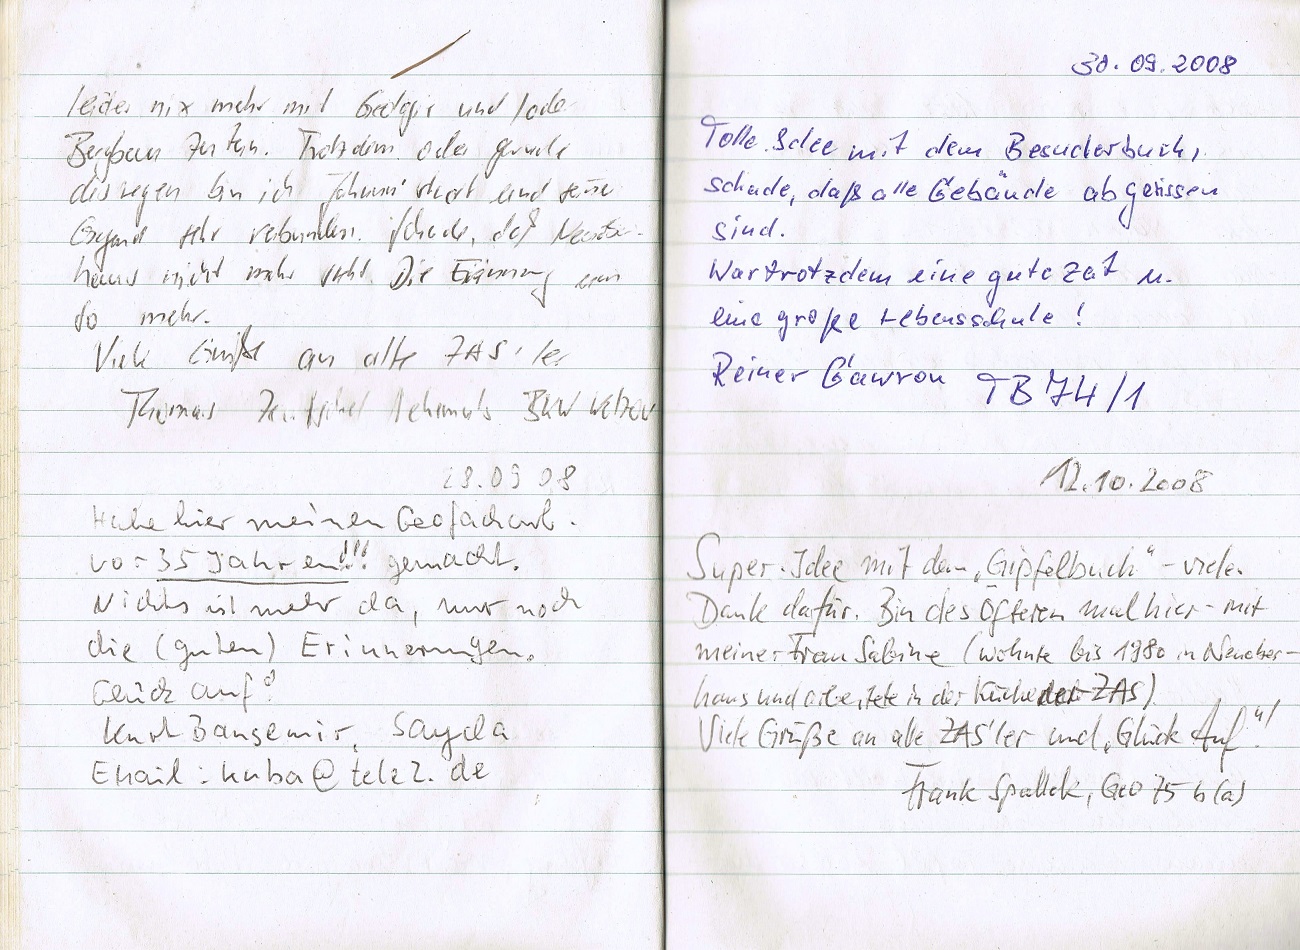 leider nix mehr mit Geologie und/oder
Bergbau zu tun. Trotzdem oder gerade
deswegen bin ich und
Gegend sehr verbunden. Schade, daß Neuober-
haus nicht mehr steht. Die Erinnerung um
so mehr.
Viele Grüße an alle ZAS'ler
Thomas BKW Welzow
28.09 08
Habe hier meinen Geofacharb.
vor 35 Jahren!!! gemacht.
Nichts ist mehr da, nur noch
die (guten) Erinnerungen.
Glück auf!
Kurt Bansemir, Sayda
Email: kuba@tele2.de
30.09.2008
Tolle Idee mit dem Besucherbuch,
schade, daß alle Gebäude abgerissen
sind.
War trotzdem eine gute Zeit u.
eine große Lebensschule!
Reiner Gawron TB 74/1
12.10.2008
Super-Idee mit dem „Gipfelbuch“ - vielen
Dank dafür. Bin des Öfteren mal hier - mit
meiner Frau Sabine (wohnte bis 1980 in Neuober-
haus und arbeitete in der Küche der ZAS).
Viele Grüße an alle ZAS'ler und „Glück Auf“!
Frank Spallek, Geo 75 b(a)